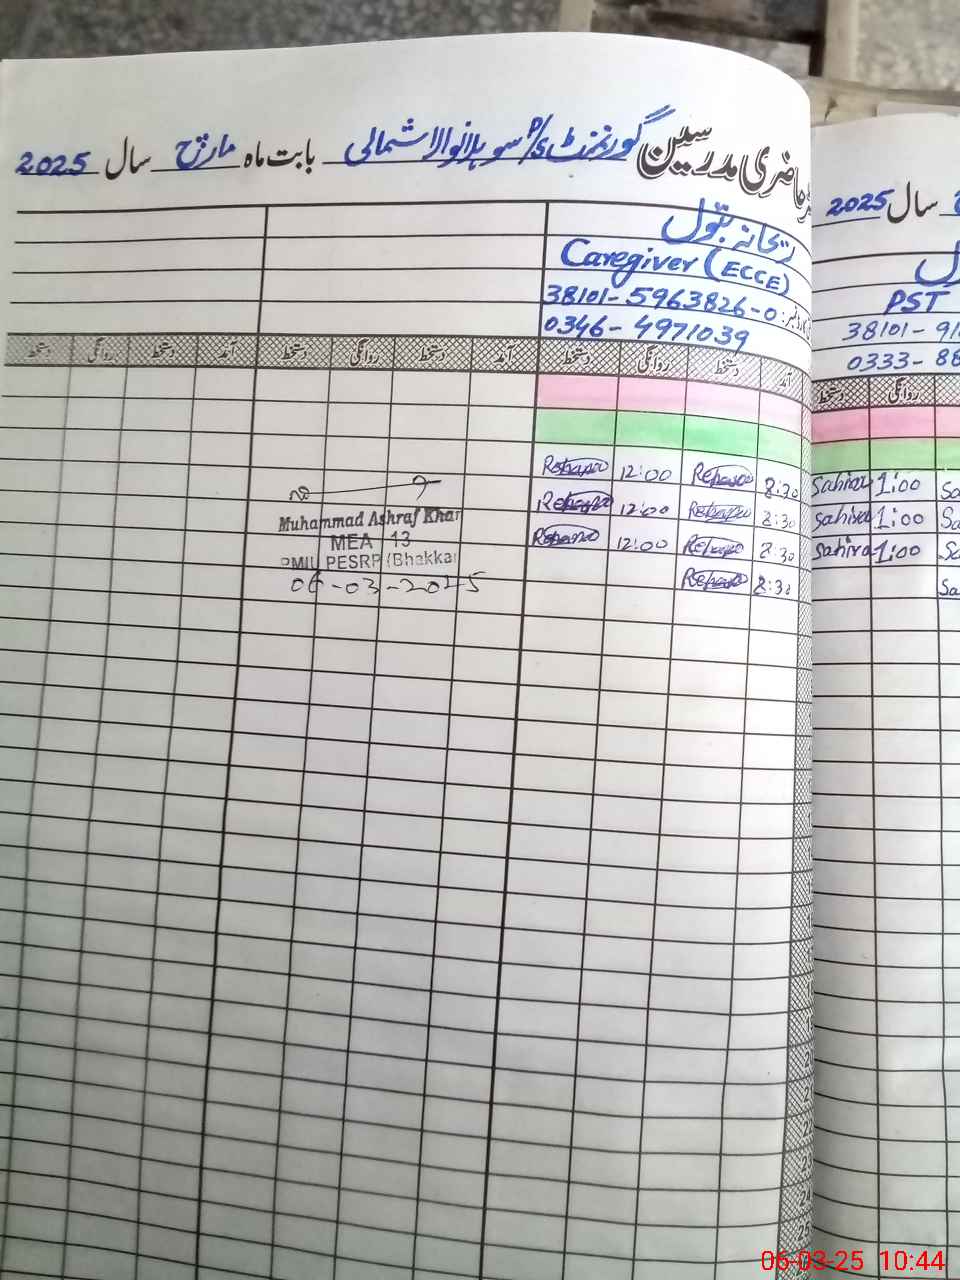 حاضری مدرسین گورنمنٹ P/S سوہلانوالا شمالی بابت ماہ مارچ سال 2025
ریحانہ بتول
Caregiver (ECCE)
38101-5963826-0
0346-4971039
آمد دستخط روانگی دستخط آمد دستخط روانگی دستخط آمد دستخط روانگی دستخط
8:30 12:00
8:30 12:00
8:30 12:00
8:30
Muhammad Ashraf Khan
MEA 13
PMIU PESRP (Bhakkar
06-03-2025
سال 2025
PST
38101-91
0333-88
روانگی دستخط
Sahira 1:00 Sa
Sahira 1:00 Sa
Sahira 1:00 Sa
Sa
20
21
22
23
24
25
06-03-25 10:44